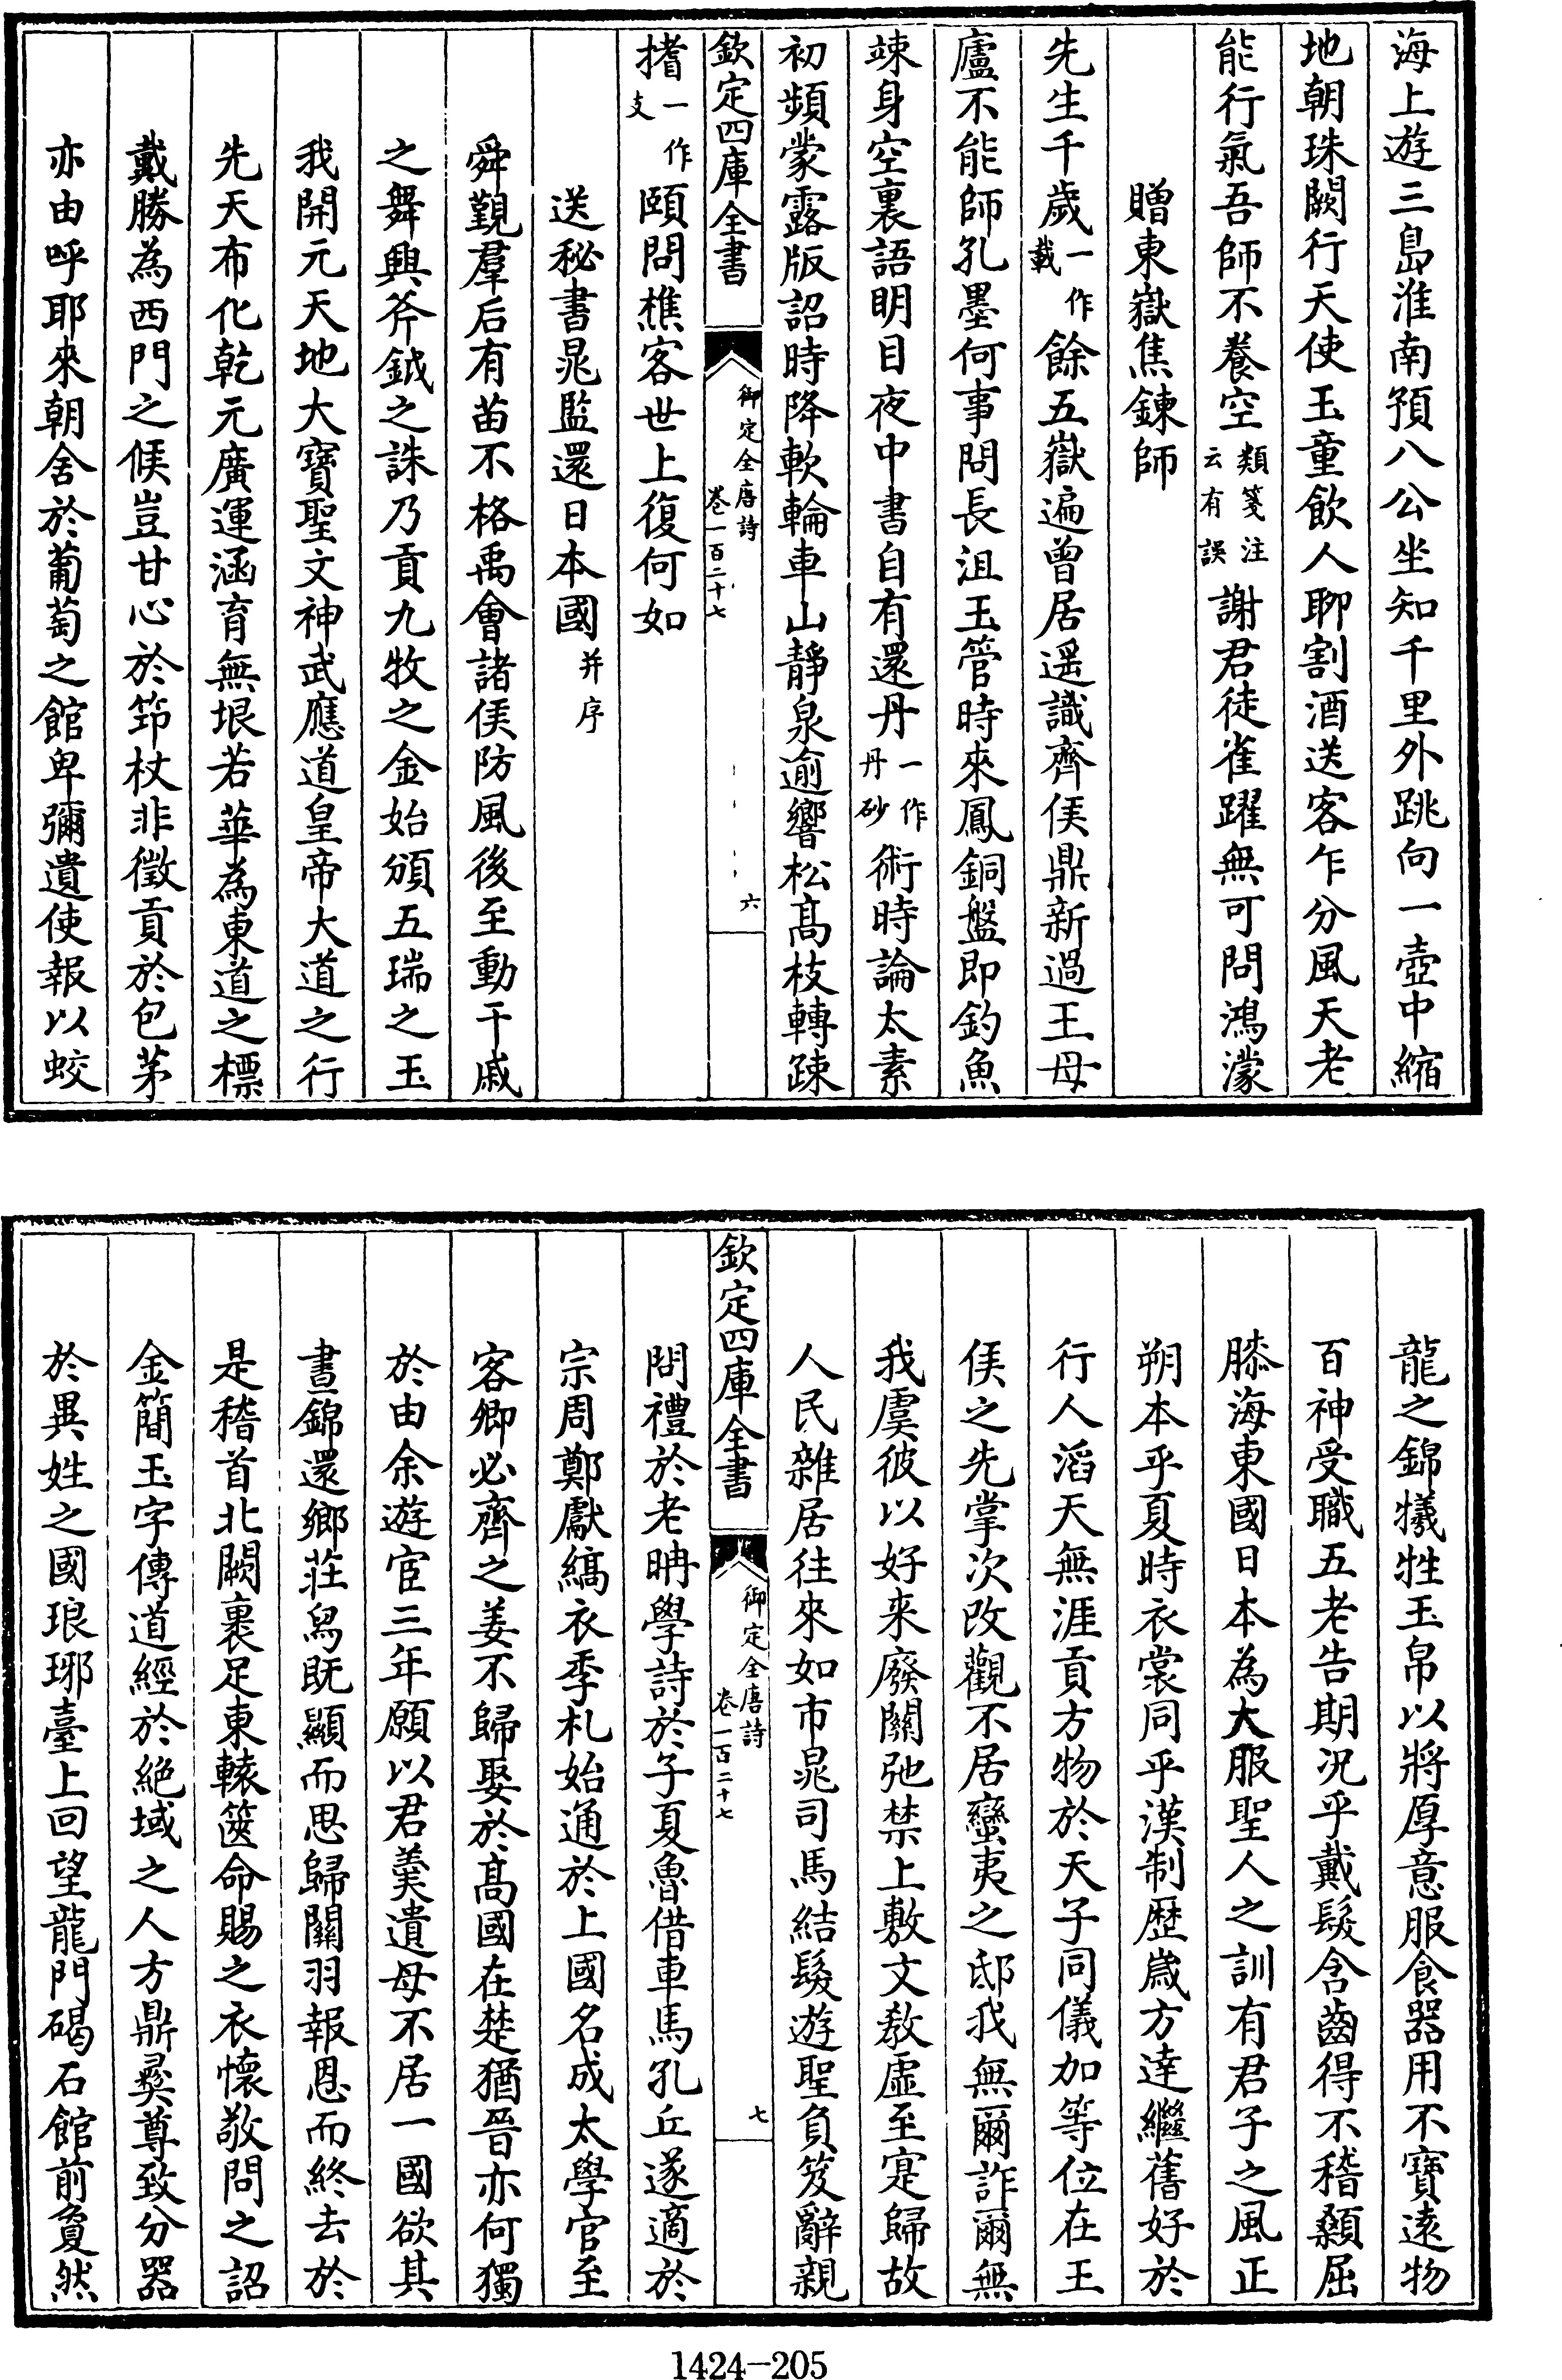 海上遊三島淮南預八公坐知千里外跳向一壺中縮
地朝珠闕行天使玉童飲人聊割酒送客乍分風天老
能行氣吾師不養空類箋注云有誤謝君徒雀躍無可問鴻濛
贈東嶽焦鍊師
先生千歲一作載餘五嶽遍曾居遥識齊侯鼎新過王母
廬不能師孔墨何事問長沮玉管時來鳳銅盤即釣魚
竦身空裏語明目夜中書自有還丹一作丹砂術時論太素
初頻蒙露版詔時降軟輪車山靜泉逾響松高枝轉疎
欽定四庫全書
御定全唐詩
卷一百二十七
六
搘一作支頤問樵客世上復何如
送秘書晁監還日本國并序
舜覲羣后有苗不格禹會諸侯防風後至動干戚
之舞興斧鉞之誅乃貢九牧之金始頒五瑞之玉
我開元天地大寶聖文神武應道皇帝大道之行
先天布化乾元廣運涵育無垠若華為東道之標
戴勝為西門之候豈甘心於笻杖非徵貢於包茅
亦由呼耶來朝舍於葡萄之館卑彌遺使報以蛟
龍之錦犧牲玉帛以將厚意服食器用不寶遠物
百神受職五老告期況乎戴髮含齒得不稽顙屈
膝海東國日本為大服聖人之訓有君子之風正
朔本乎夏時衣裳同乎漢制歴歲方達繼舊好於
行人滔天無涯貢方物於天子同儀加等位在王
侯之先掌次改觀不居蠻夷之邸我無爾詐爾無
我虞彼以好来廢關弛禁上敷文教虚至寔歸故
人民雜居往來如市晁司馬結髮遊聖負笈辭親
欽定四庫全書
御定全唐詩
卷一百二十七
七
問禮於老聃學詩於子夏魯借車馬孔丘遂適於
宗周鄭獻縞衣季札始通於上國名成太學官至
客卿必齊之姜不歸娶於高國在楚猶晉亦何獨
於由余遊宦三年願以君羹遺母不居一國欲其
晝錦還鄉莊舄既顯而思歸關羽報恩而終去於
是稽首北闕裹足東轅篋命賜之衣懷敬問之詔
金簡玉字傳道經於絶域之人方鼎彛尊致分器
於異姓之國琅琊臺上回望龍門碣石館前敻然
1424-205